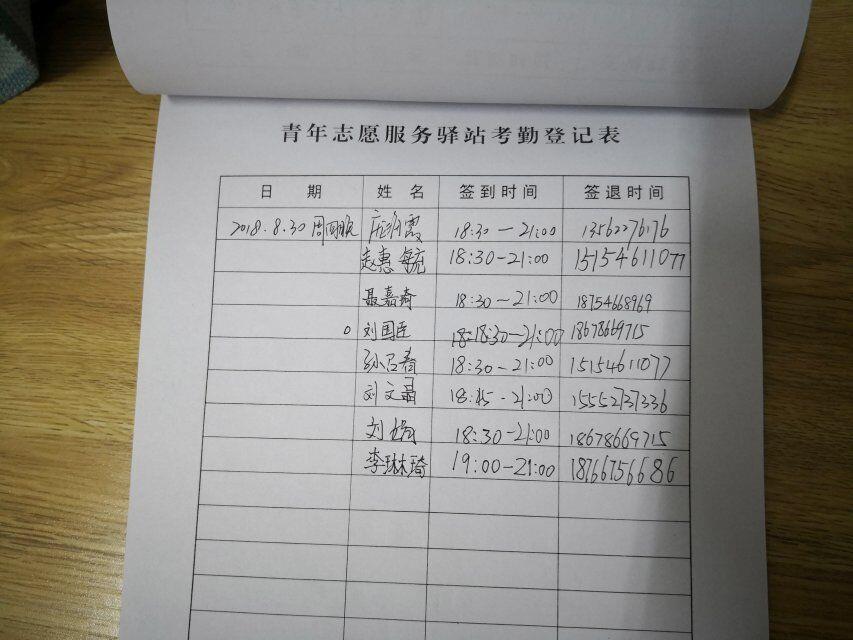 青年志愿服务驿站考勤登记表
日 期 姓 名 签到时间 签退时间
2018.8.30 18:30—21:00 13562276176
赵惠 18:30-21:00 15154611077
聂嘉琦 18:30-21:00 18754668969
刘国臣 18:18:30-21:00 18678669715
孙召春 18:30-21:00 15154611077
刘文晶 18:45-21:00 15552737336
刘杨 18:30-21:00 18678669715
李琳琦 19:00-21:00 18766756686